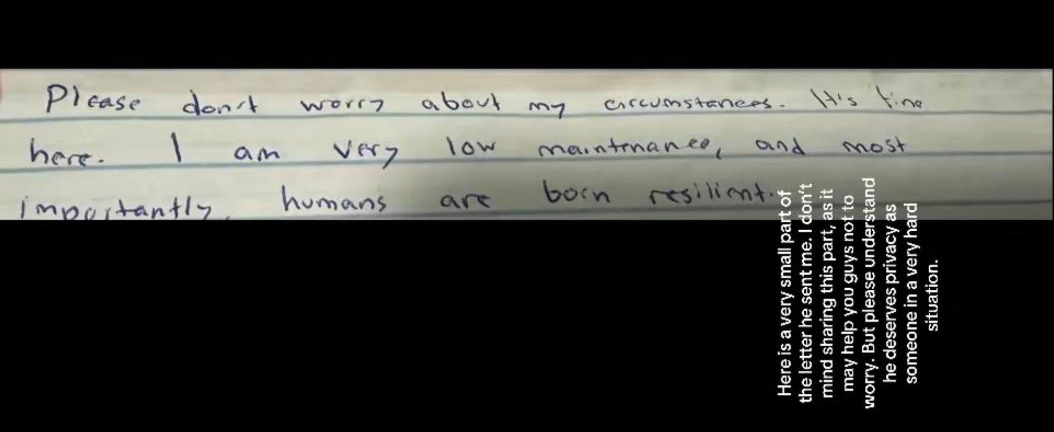 Please don't worry about my circumstances. It's fine
here. I am very low maintenance, and most
importantly, humans are born resilient.
Here is a very small part of
the letter he sent me. I don't
mind sharing this part, as it
may help you guys not to
worry. But please understand
he deserves privacy as
someone in a very hard
situation.